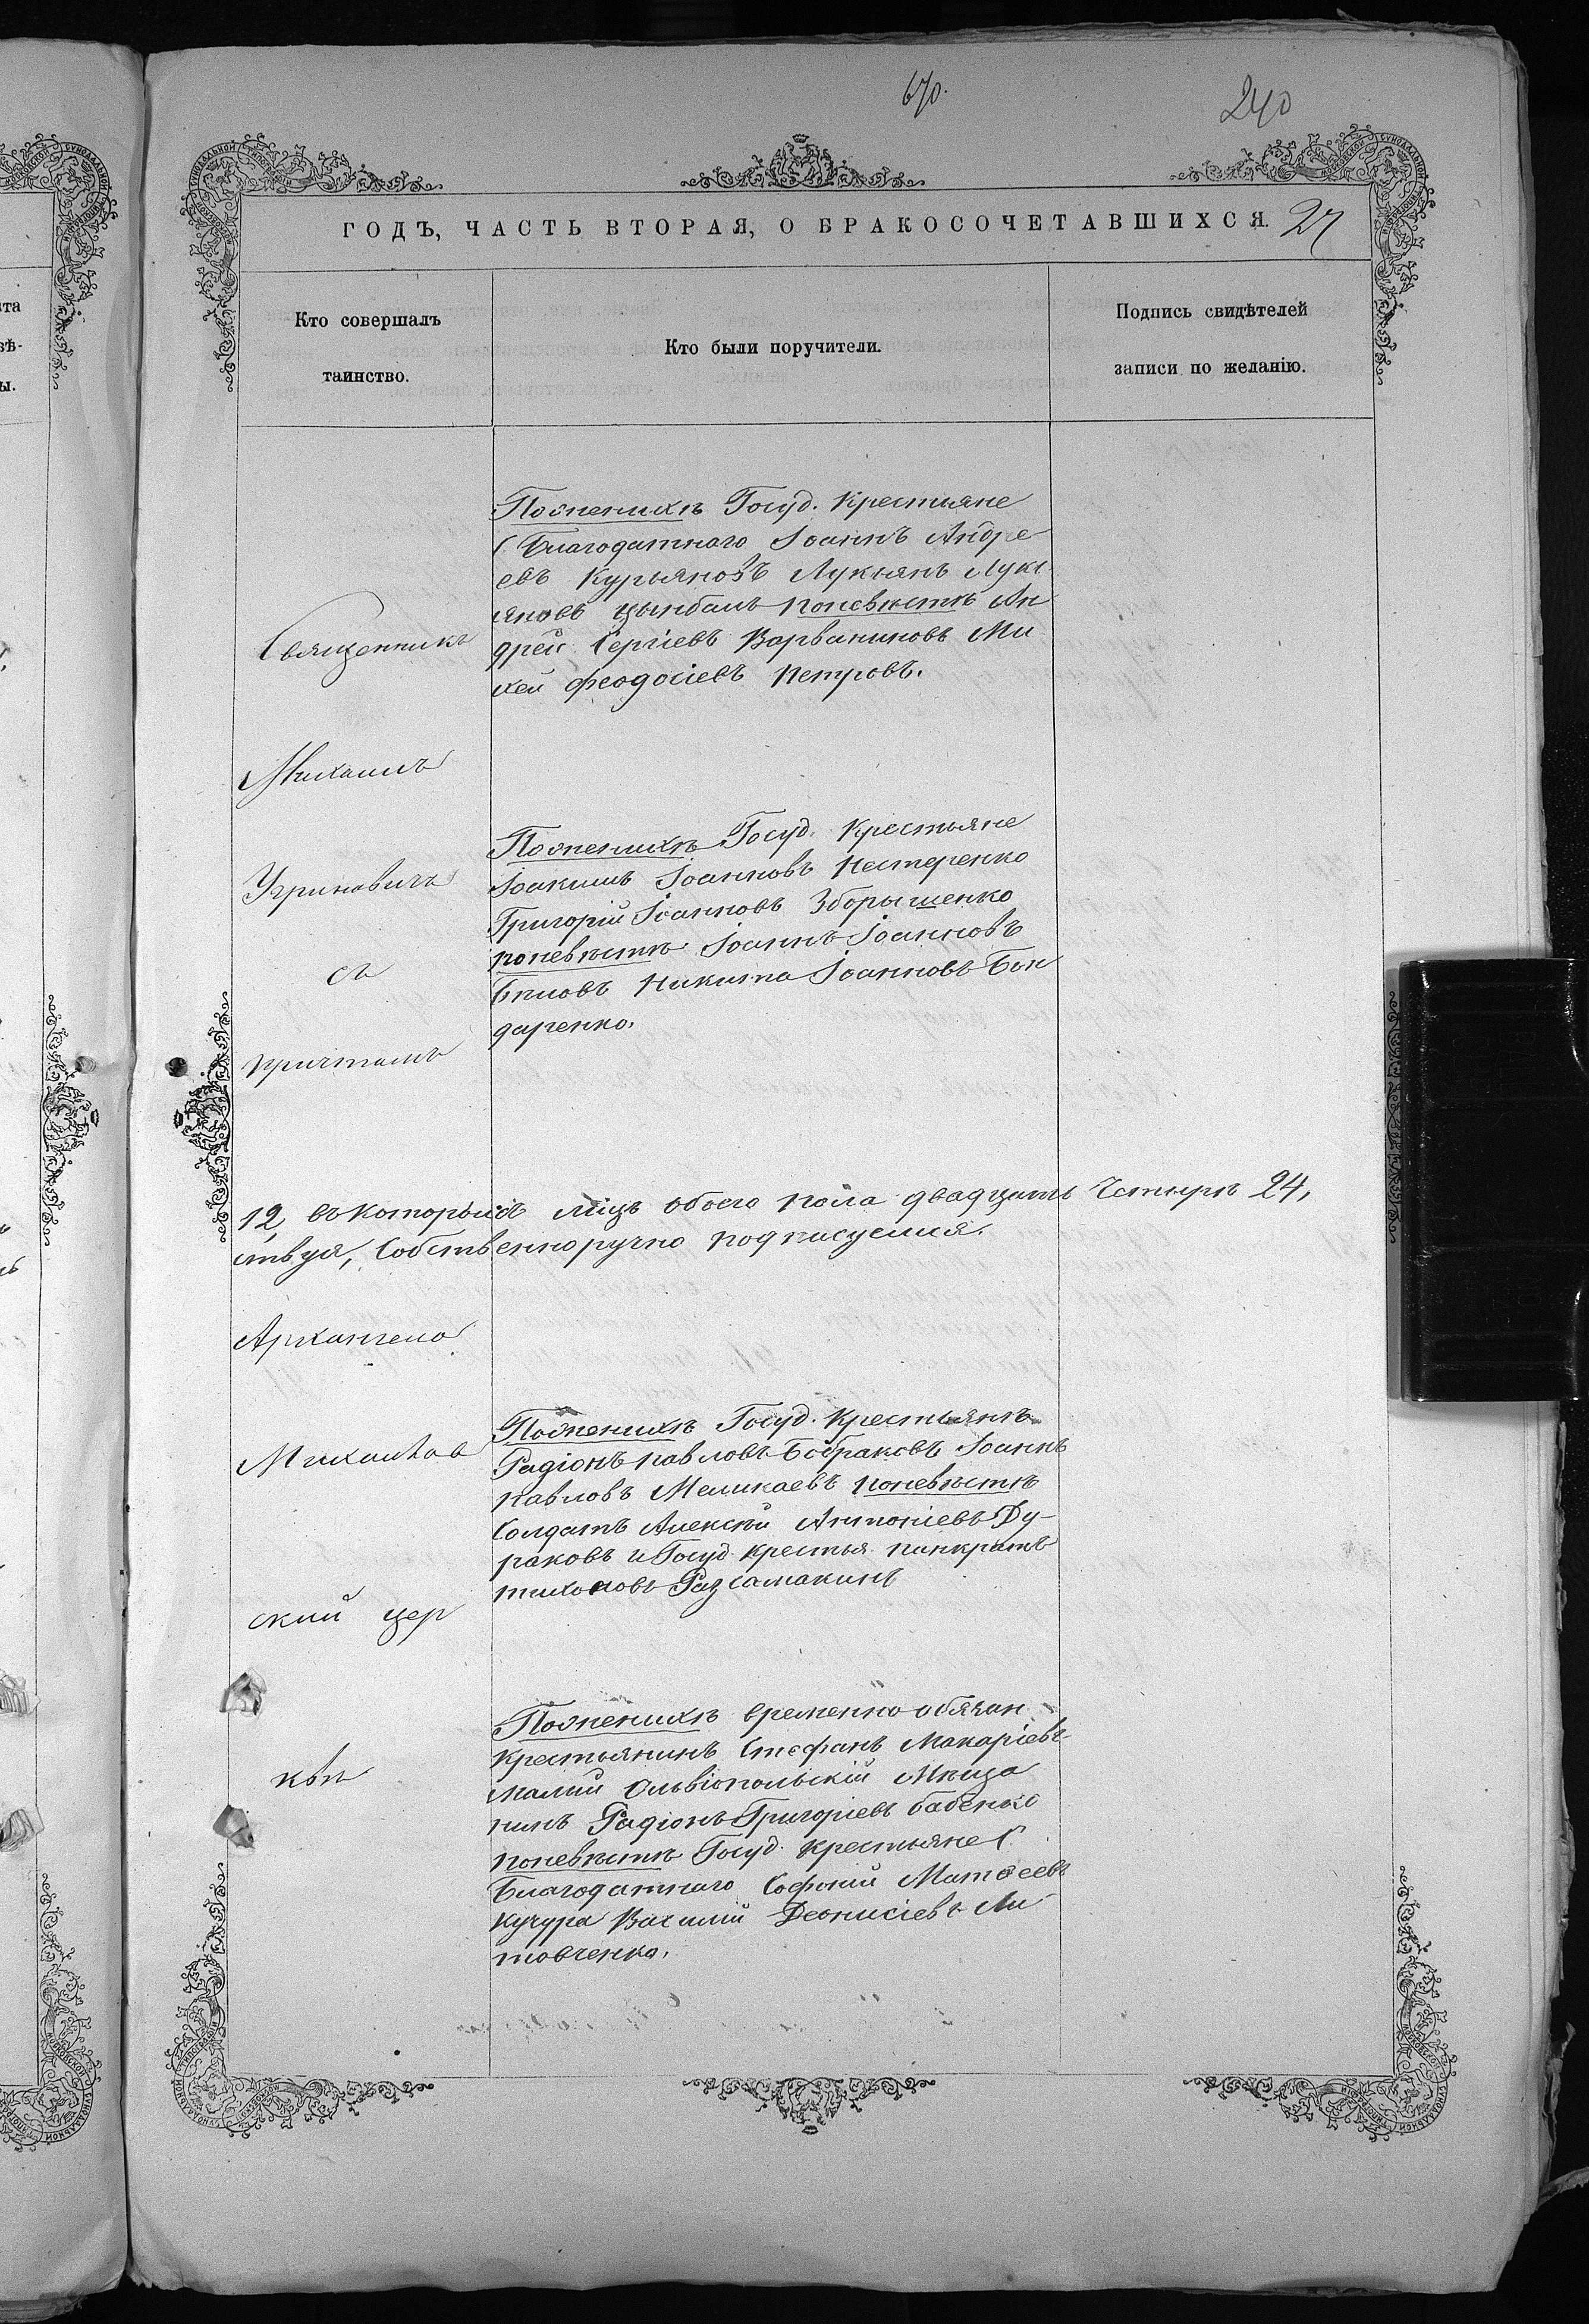 670.
240
ГОДЪ, ЧАСТЬ ВТОРАЯ, О БРАКОСОЧЕТАВШИХСЯ. 27
Кто совершалъ
таинство.
Кто были поручители.
Подпись свидѣтелей
записи по желанію.
Священникъ
Михаилъ
Угриновичъ
съ
причтомъ
По женихѣ Госуд. Крестьяне
С Благодатнаго Іоаннъ Андре
евъ Курьяновъ Лукьянъ Лукі
яновъ Цымбалъ по невѣстѣ Ан
дрей Сергіевъ Варваниновъ Ми
хей Феодосіевъ Петровъ.
По женихѣ Госуд. Крестьяне
Іоакимъ Іоанновъ Нестеренко
Григорій Іоанновъ Зборышенко
по невѣстѣ Іоаннъ Іоанновъ
Бѣловъ Никита Іоанновъ Бон
даренко.
12, въ которыхъ лицъ обоего пола двадцать четыре 24,
ствуя, Собственноручно подписуемся.
Архангело
Михайлов
ской цер
кви
По женихѣ Госуд. Крестьянъ
Радіонъ Павловъ Бобраковъ Іоаннъ
Павловъ Меликаевъ по невѣстѣ
Солдатъ Алексѣй Антоніевъ Ду-
раковъ и Госуд. Крестья Панкратъ
Тихоновъ Разсамакинъ
По женихѣ временно обязан
Крестьянинъ Стефанъ Макаріевъ
Малый Ольвіопольскій Мѣща
нинъ Радіонъ Григоріевъ Бабенко
по невѣстѣ Госуд. Крестьяне С
Благодатнаго Софоній Матѳеевъ
Кучура Василій Деонисіевъ Ли
товченко.